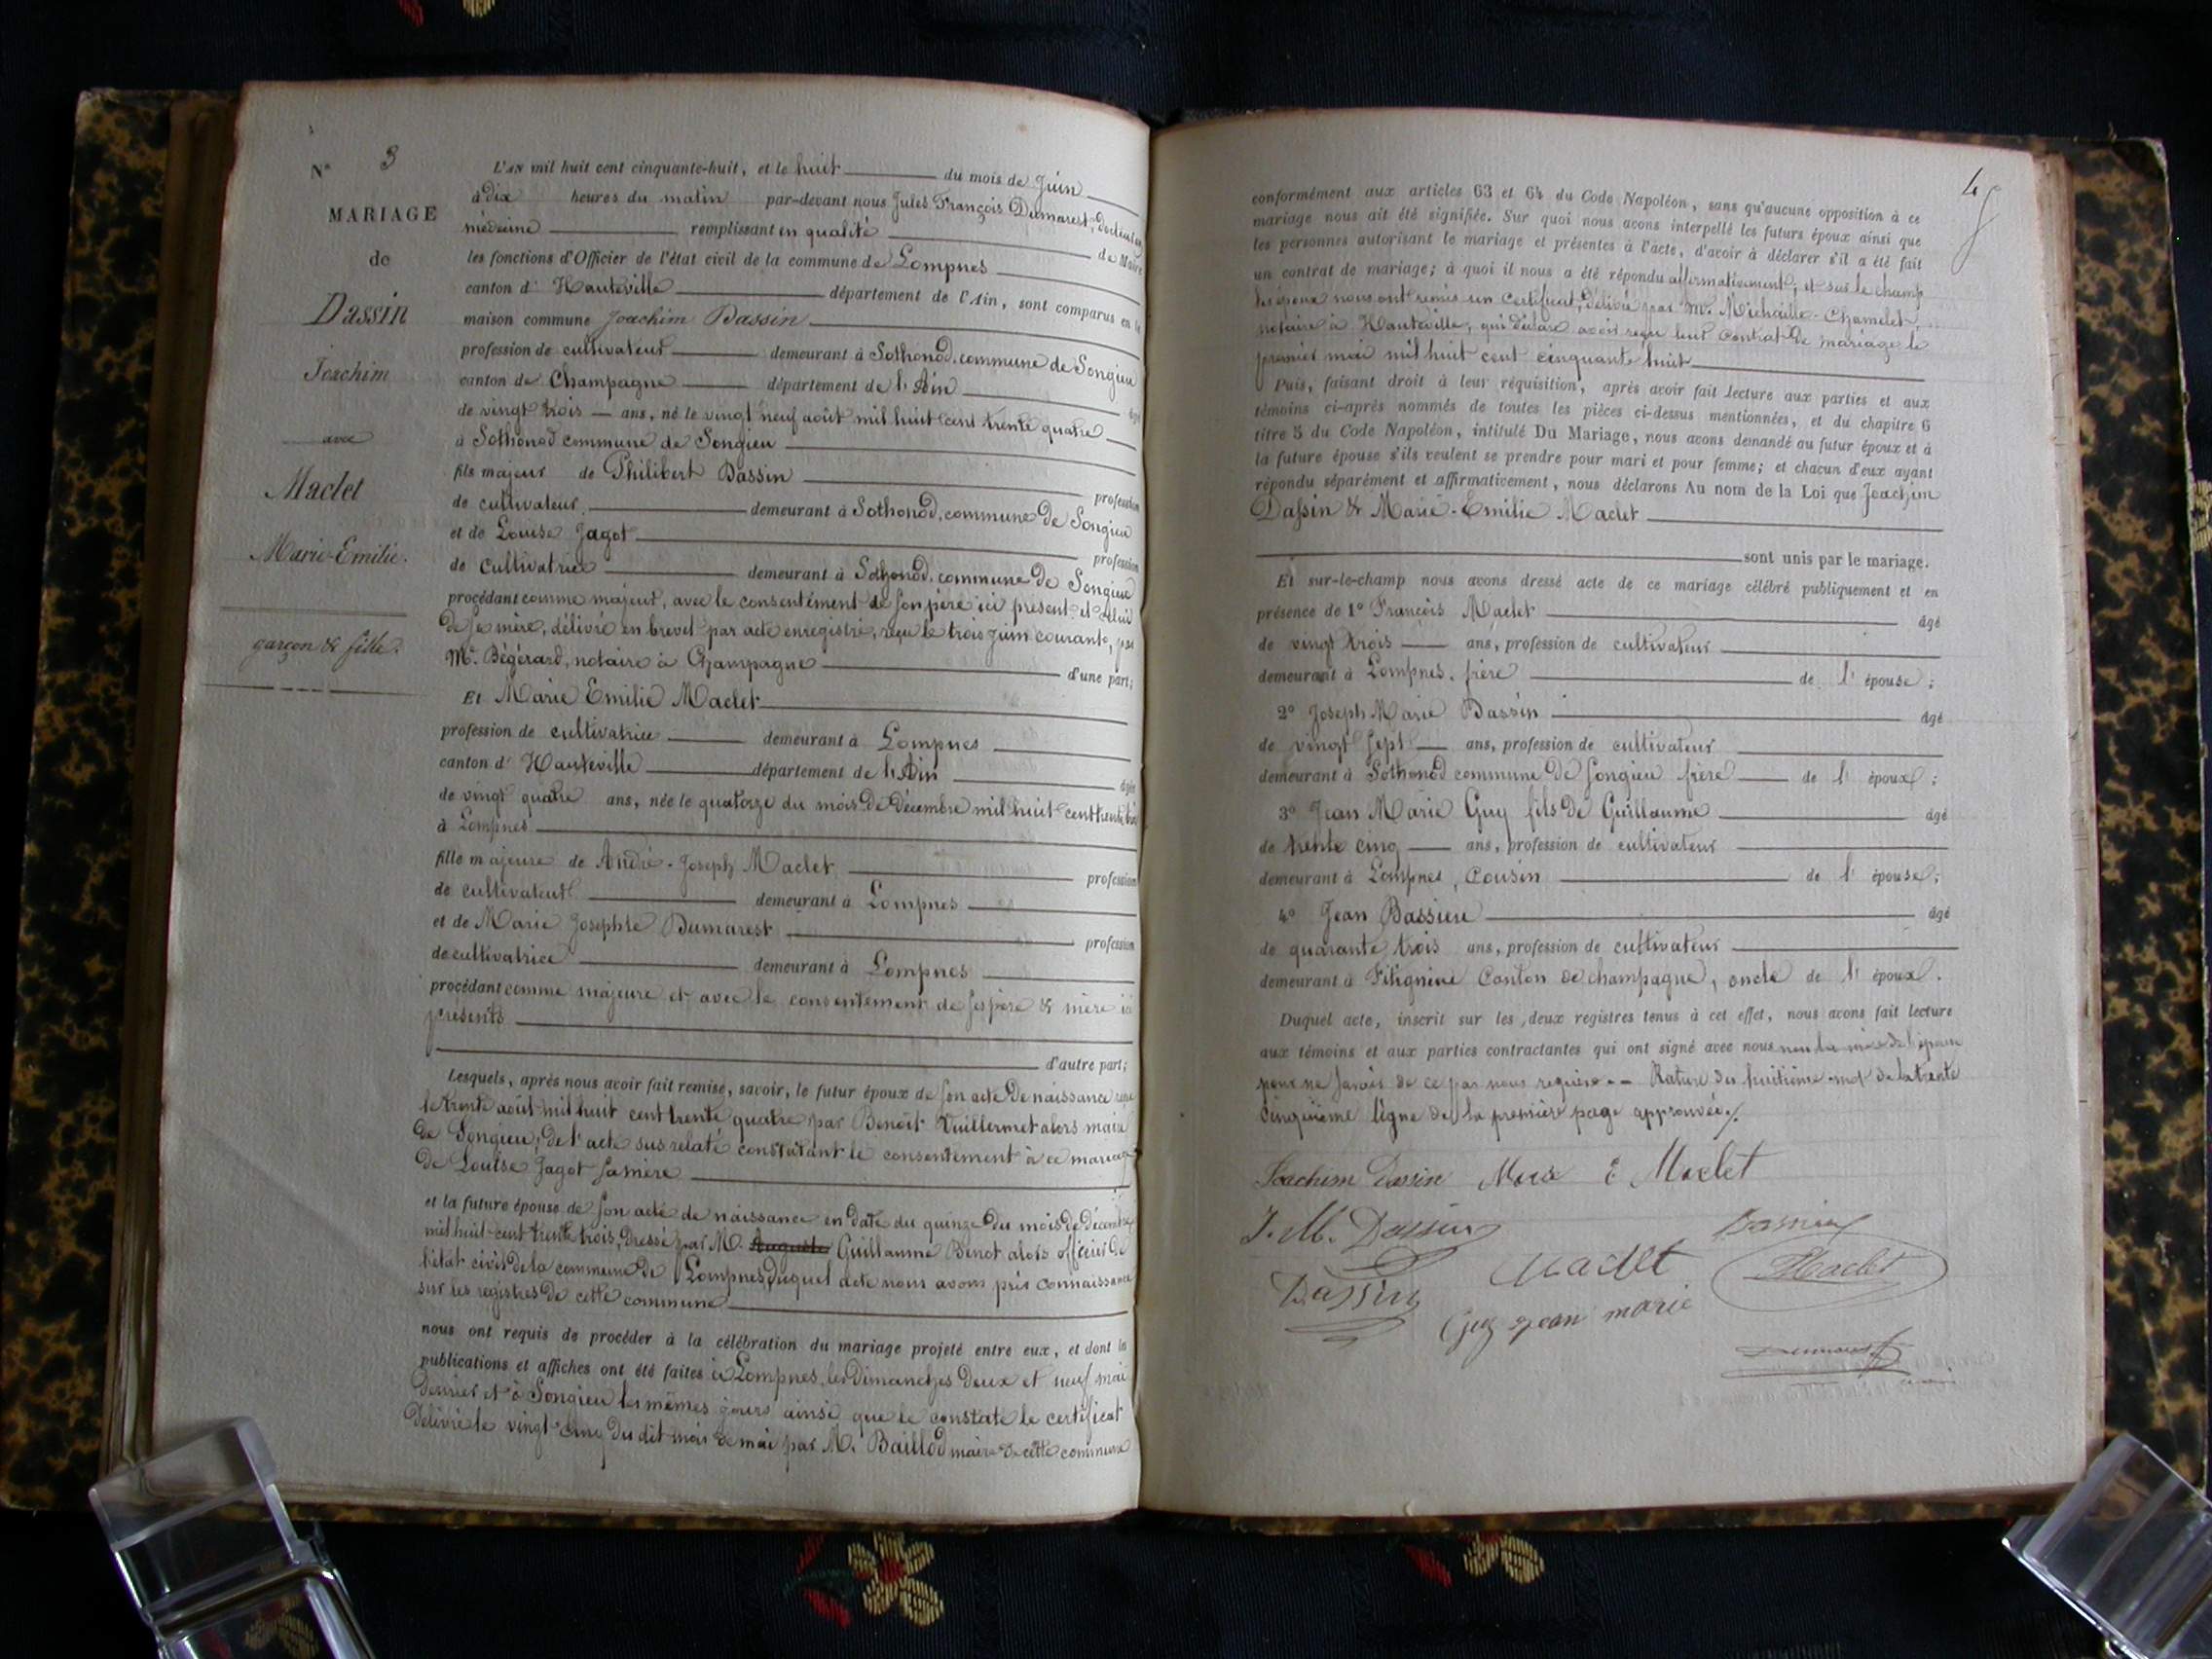 N° 3
MARIAGE
de
Dassin
Joachim
avec
Maclet
Marie-Emilie.
garçon & fille.
L'AN mil huit cent cinquante-huit, et le huit du mois de Juin
à dix heures du matin par-devant nous Jules François Dumarest, docteur en
médecine remplissant en qualité de Maire
les fonctions d'Officier de l'état civil de la commune de Lompnes
canton d' Hauteville département de l'Ain, sont comparus en la
maison commune Joachim Dassin
profession de cultivateur demeurant à Sothonod, commune de Songieu
canton de Champagne département de l'Ain âgé
de vingt trois ans, né le vingt neuf août mil huit cent trente quatre
à Sothonod commune de Songieu
fils majeur de Philibert Dassin profession
de cultivateur demeurant à Sothonod, commune de Songieu
et de Louise Jagot profession
de cultivatrice demeurant à Sothonod, commune de Songieu
procédant comme majeur, avec le consentement de son père ici présent et celui
de sa mère, délivré en brevet par acte enregistré, reçu le trois juin courant, par
Me. Bégérard, notaire à Champagne d'une part;
Et Marie Emilie Maclet
profession de cultivatrice demeurant à Lompnes
canton d' Hauteville département de l'Ain âgée
de vingt quatre ans, née le quatorze du mois de décembre mil huit cent trente trois
à Lompnes
fille majeure de André-Joseph Maclet profession
de cultivateur demeurant à Lompnes
et de Marie Josephte Dumarest profession
de cultivatrice demeurant à Lompnes
procédant comme majeure et avec le consentement de ses père & mère ici
présents
d'autre part;
Lesquels, après nous avoir fait remise, savoir, le futur époux de son acte de naissance reçu
le trente août mil huit cent trente quatre par Benoît Vuillermet alors maire
de Songieu; de l'acte sus relaté constatant le consentement à ce mariage
de Louise Jagot sa mère
et la future épouse de son acte de naissance en date du quinze du mois de décembre
mil huit cent trente trois, dressé par M. Auguste Guillaume Benot alors officier de
l'état civil de la commune de Lompnes duquel acte nous avons pris connaissance
sur les registres de cette commune
nous ont requis de procéder à la célébration du mariage projeté entre eux, et dont les
publications et affiches ont été faites à Lompnes, les dimanches deux et neuf mai
dernier et à Songieu les mêmes jours ainsi que le constate le certificat
délivré le vingt-cinq du dit mois de mai par M. Baillod maire de cette commune
4
conformément aux articles 63 et 64 du Code Napoléon, sans qu'aucune opposition à ce
mariage nous ait été signifiée. Sur quoi nous avons interpellé les futurs époux ainsi que
les personnes autorisant le mariage et présentes à l'acte, d'avoir à déclarer s'il a été fait
un contrat de mariage; à quoi il nous a été répondu affirmativement; et sur le champ
les époux nous ont remis un certificat, délivré par Me. Michaille-Chamelet,
notaire à Hauteville, qui déclare avoir reçu leur contrat de mariage le
premier mai mil huit cent cinquante huit
Puis, faisant droit à leur réquisition, après avoir fait lecture aux parties et aux
témoins ci-après nommés de toutes les pièces ci-dessus mentionnées, et du chapitre 6
titre 5 du Code Napoléon, intitulé Du Mariage, nous avons demandé au futur époux et à
la future épouse s'ils veulent se prendre pour mari et pour femme; et chacun d'eux ayant
répondu séparément et affirmativement, nous déclarons Au nom de la Loi que Joachim
Dassin & Marie-Emilie Maclet
sont unis par le mariage.
Et sur-le-champ nous avons dressé acte de ce mariage célébré publiquement et en
présence de 1° François Maclet âgé
de vingt trois ans, profession de cultivateur
demeurant à Lompnes, frère de l' épouse;
2° Joseph Marie Dassin âgé
de vingt sept ans, profession de cultivateur
demeurant à Sothonod commune de Songieu frère de l' époux;
3° Jean Marie Guy fils de Guillaume âgé
de trente cinq ans, profession de cultivateur
demeurant à Lompnes, cousin de l' épouse;
4° Jean Bassieu âgé
de quarante trois ans, profession de cultivateur
demeurant à Fitignieu Canton de champagne, oncle de l' époux.
Duquel acte, inscrit sur les deux registres tenus à cet effet, nous avons fait lecture
aux témoins et aux parties contractantes qui ont signé avec nous non la mère de l'épouse
pour ne savoir de ce par nous requise. - Rature du huitième mot de la trente
cinquième ligne de la première page approuvée./.
Joachim Dassin Marie E Maclet
J. M. Dassin Bassieu
Dassin Maclet Maclet
Guy jean marie
Dumarest